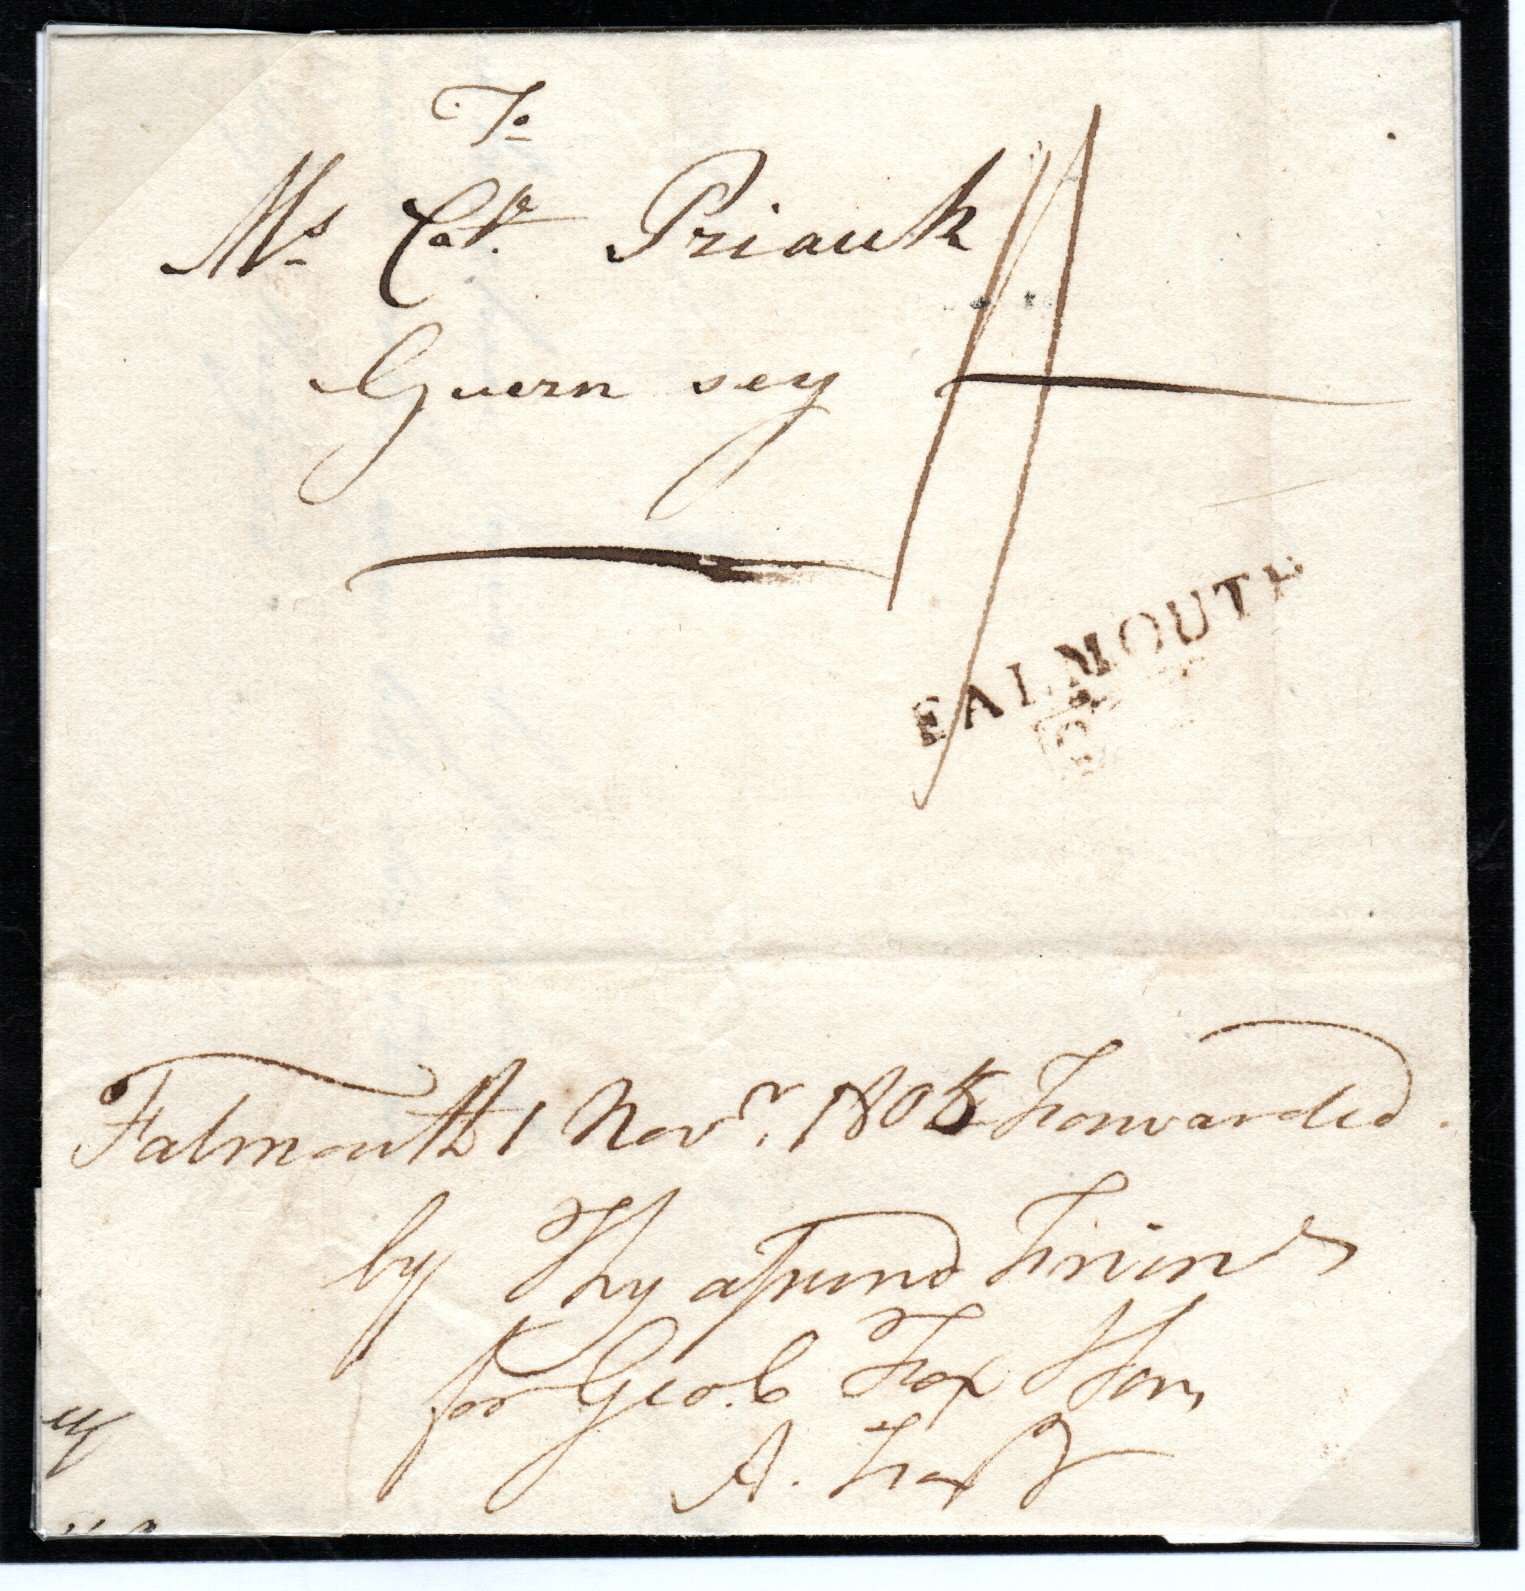 To
Ms Carr. Priauk
Guern sey
11
FALMOUTH
Falmouth 1 Novr. 1805 Forwarded.
by Thy assured Friends
for Geo. C Fox & Son,
A. Fox